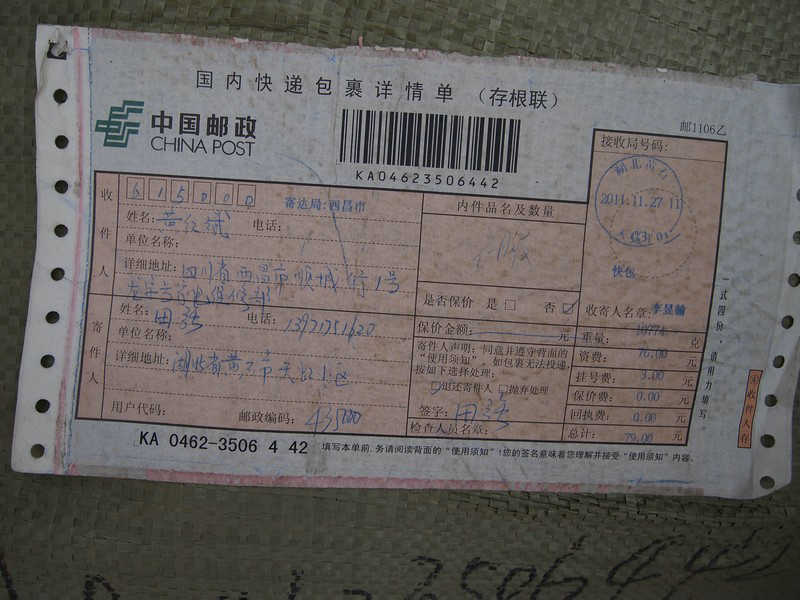 国内快递包裹详情单 (存根联)
中国邮政
CHINA POST
KA04623506442
邮1106乙
接收局号码:
湖北黄石
2011.11.27 11
快包
收件人
615000
寄达局:西昌市
姓名:
电话:
单位名称:
详细地址:四川省西昌市顺城街1号
内件品名及数量
是否保价 是 否
收寄人名章:
寄件人
姓名:田
电话:
单位名称:
详细地址:湖北省黄石市
用户代码:
邮政编码:
保价金额: 元
寄件人声明:同意并遵守背面的
"使用须知",如包裹无法投递,
按如下选择处理:
退还寄件人 抛弃处理
签字:田
检查人员名章:
重量: 克
资费: 76.00 元
挂号费: 3.00 元
保价费: 0.00 元
回执费: 0.00 元
总计: 79.00 元
一式四份,请用力填写
KA 0462-3506 4 42
填写本单前,务请阅读背面的"使用须知"!您的签名意味着您理解并接受"使用须知"内容。